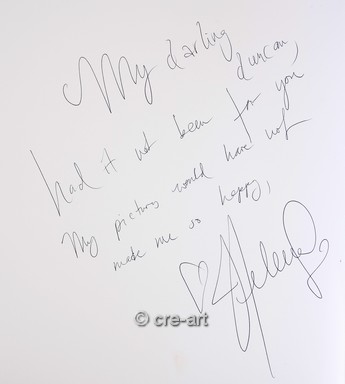 My darling
duncan,
had it not been for you
My pictures would have not
made me so happy,
♡ Helena
© cre-art